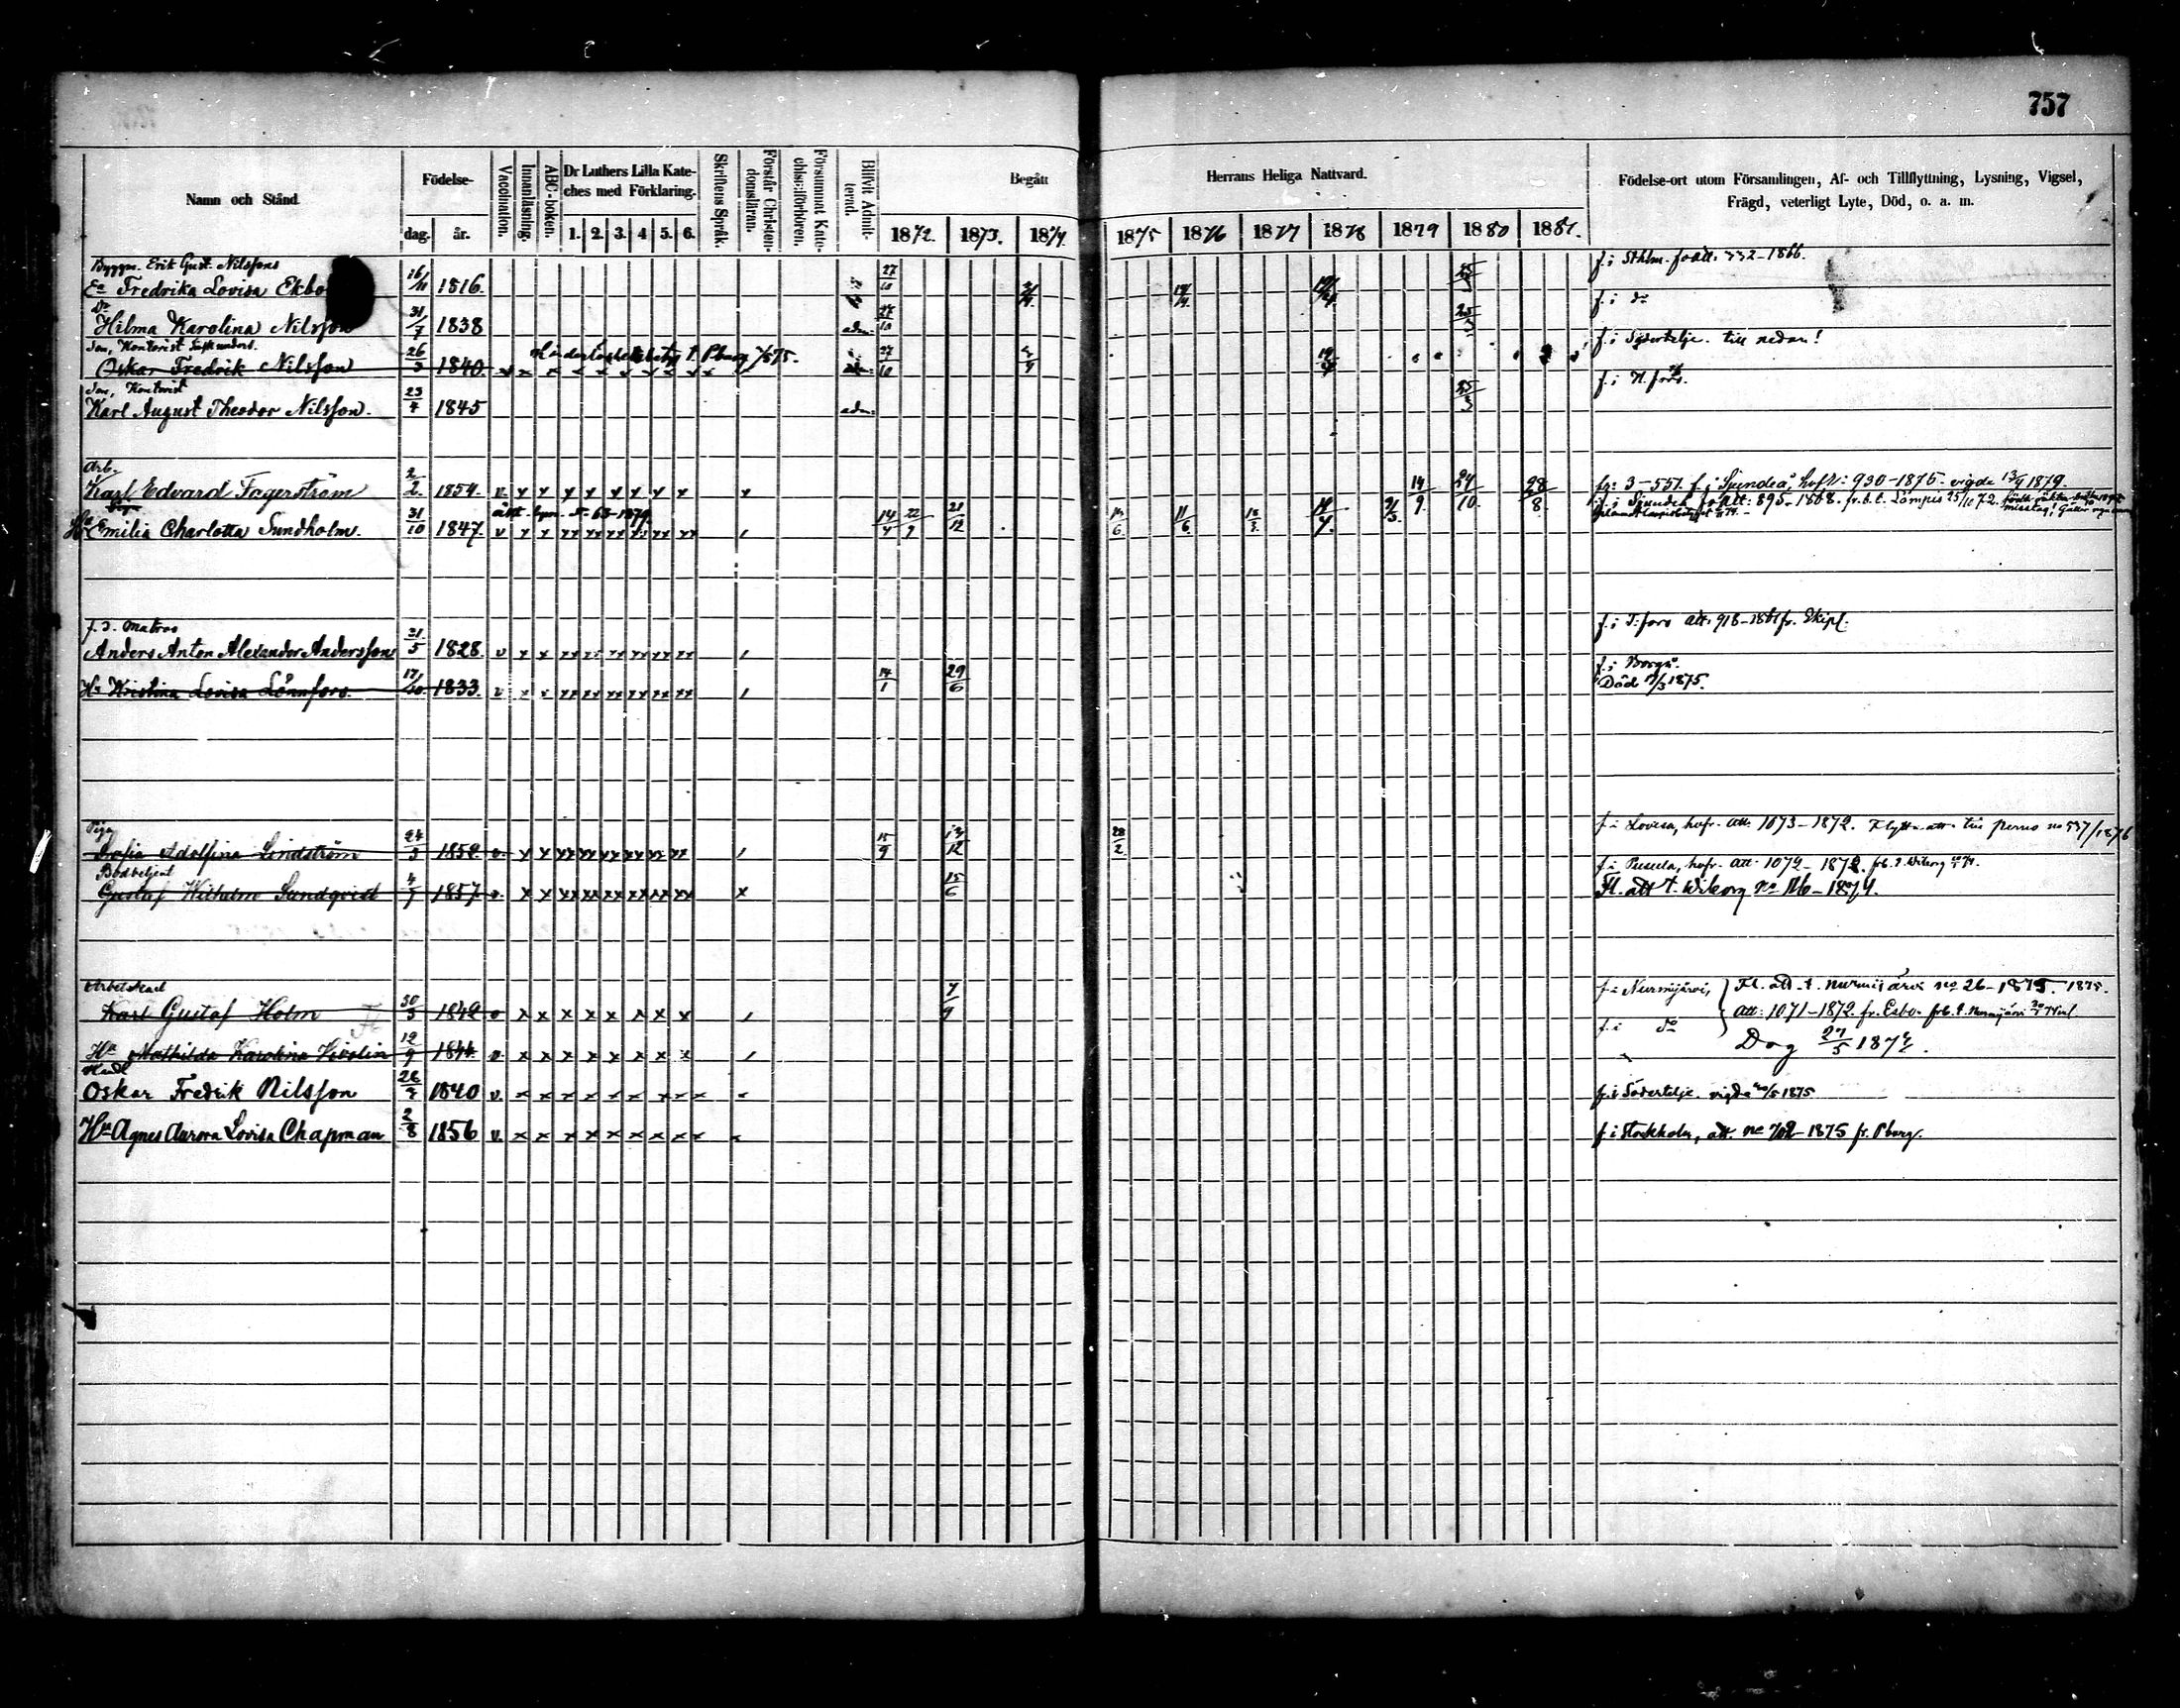 757
Namn och Stånd
Födelse-
dag. år.
Vaccination.
Innanläsning.
ABC-boken.
Dr Luthers Lilla Kate-
ches med Förklaring.
1. 2. 3. 4 5. 6.
Skriftens Språk.
Förstår Christen-
domsläran.
Försummat Kate-
chismiförhören.
Blifvit Admit-
terad.
Begått Herrans Heliga Nattvard.
1872. 1873. 1874. 1875 1876 1877 1878 1879 1880 1881.
Födelse-ort utom Församlingen, Af- och Tillflyttning, Lysning, Vigsel,
Frägd, veterligt Lyte, Död, o. a. m.
Byggm. Erik Gust. Nilssons
Ea Fredrika Lovisa Ekbo 16/11 1816. 27/10 f. i Sthlm. 332-1866.
Dr
Hilma Karolina Nilsson 31/7 1838 adm. 27/10 25/3 f. i do
Son, Kontorist
Oskar Fredrik Nilsson 26/3 1840. t. Pburg 27/10 f. i Södertelje. till nedan!
Son, Kontorist
Karl August Theodor Nilsson. 23/4 1845 adm. 25/3 f. i H.fors.
Arb.
Karl Edvard Fagerström 2/2 1854. v x x x x x x x x x 14/9 24/10 28/8 fr. 3-557. f. i Sjundeå, hofr: 930-1875. vigde 13/9 1879.
Ha Emilia Charlotta Sundholm. 31/10 1847. v x x xx xx xx xx xx xx 14/4 22/9 21/12 11/6 f. i Sjundeå att: 895-1868. fr. b. t. Lampis 25/10 72.
misstag!
f. d. Matros
Anders Anton Alexander Andersson 31/5 1828. v x x xx xx xx xx xx xx f. i T.fors att: 918-1861 fr. Ekipl.
Ha Kristina Lovisa Lönnfors. 17/10 1833. v x x xx xx xx xx xx xx 14/1 29/6 f. i Borgå.
Död 1875.
Piga
Sofia Adolfina Lindström 24/3 1852. v. x x xx xx xx xx xx xx 15/9 28/2 f. i Lovisa, hofr. att: 1073-1872. Flytt. att. till Perno no 537/1876
Bodbetjent
Gustaf Wilhelm Sundqvist 4/7 1857. v. x x xx xx xx xx xx xx x 15/6 f. i Pusula, hofr. att: 1072-1872. frb. t. Wiborg
Fl. att t. Wiborg no 126-1874.
Arbetskarl
Karl Gustaf Holm 30/3 1842 v x x x x x x x x 7/9 f. i Nurmijärvi, Fl. att. t. Nurmijärvi no 26-1875. 1875.
att: 1071-1872. fr. Esbo. frb. t. Nurmijärvi
Ha Mathilda Karolina 12/9 1844 v x x x x x x x x f. i do
Dog 27/5 187
Oskar Fredrik Nilsson 1840 v. x x x x x x x x f. i Södertelje. vigda 1875
Ha Agnes Aurora Lovisa Chapman 2/8 1856 v. x x x x x x x x f. i Stockholm, att. no 702-1875 fr. Pburg.